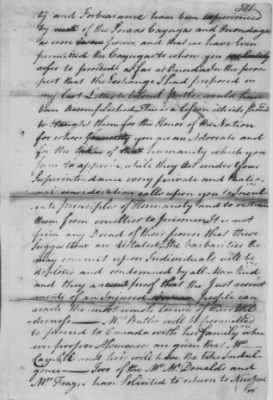 381
ty and Forbearance have been experienced
by each of the Senecas Cayugas and Onondagas
as were in our power, and that we have even
permitted the Cayugas to whom you
refer to proceed as far as Canada in the pros-
pect that the Exchange I had proposed in
my last Letter to Colonel Butler would have
been accomplished. This is a Lesson which I could
to them for the Honor of the Nation
for whose you are an Advocate and
for the of that humanity which you
seem to approve, while they act under your
Superintendance every private and Natio-
nal consideration calls upon you to
ate principles of Humanity and to restrain
them from cruelties to prisoners. It is not
from any Dread of their power that these
Suggestions are dictated. The barbarities they
may commit upon Individuals will be
deplored and condemned by all Mankind
and they a recent proof that the just resent-
ments of an Injured people can
reach the most remote Corner of their Wil-
derness. Mrs Butler will be permitted
to proceed to Canada with her family when
proper Assurances are given that Mrs
Campbell and hers will have the like Indul-
gence. Two of the Mr McDonalds and
Mr Frazer have solicited to return to